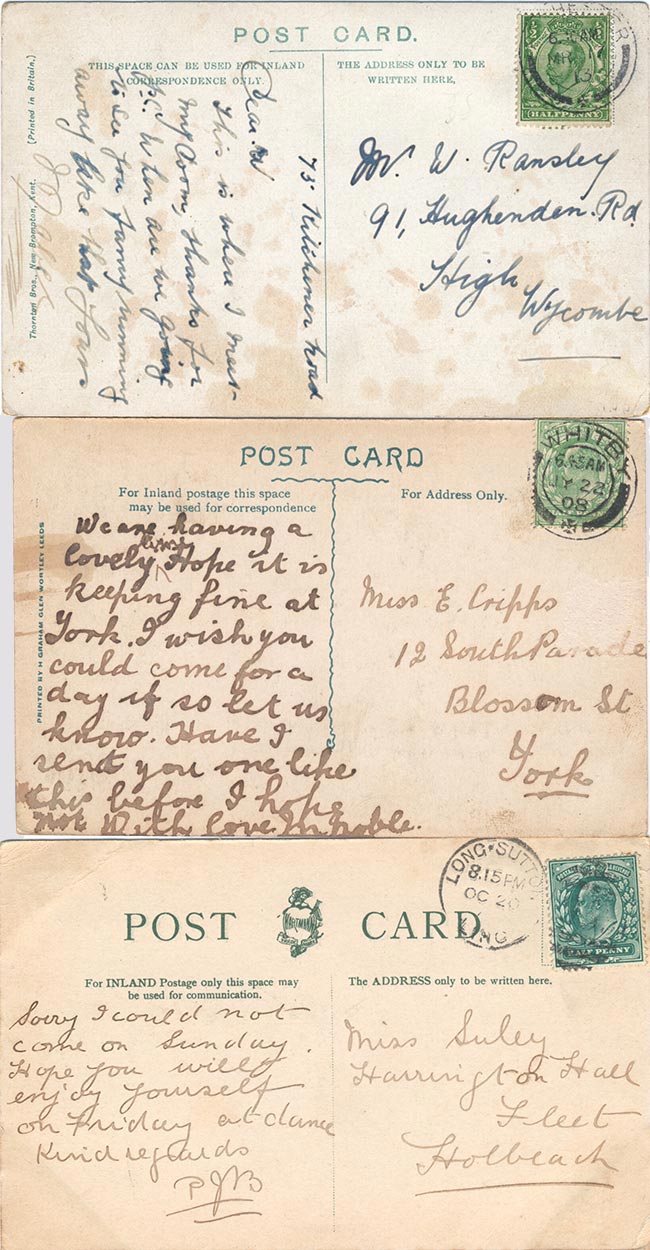 POST CARD.
THIS SPACE CAN BE USED FOR INLAND
CORRESPONDENCE ONLY.
THE ADDRESS ONLY TO BE
WRITTEN HERE,
(Printed in Britain.)
Thornton Bros., New Brompton, Kent.
HALFPENNY
75 Kitchener Road
Dear W
This is where I meet
my Doom, thanks for
P.C. When are we going
to see you fancy running
away like that Yours
Mr. W. Ransley
91, Hughenden Rd
High
Wycombe
POST CARD
For Inland postage this space
may be used for correspondence
For Address Only.
PRINTED BY H GRAHAM GLEN WORTLEY LEEDS
WHITBY
6.45AM
JY 22
08
We are having a
lovely time Hope it is
keeping fine at
York. I wish you
could come for a
day if so let us
know. Have I
sent you one like
this before I hope
not With love
Miss E. Cripps
12 South Parade
Blossom St
York
POST CARD
HARTMANN
For INLAND Postage only this space may
be used for communication.
The ADDRESS only to be written here.
LONG SUTTON
8.15PM
OC 20
HALFPENNY
Sorry I could not
come on Sunday.
Hope you will
enjoy yourself
on Friday at dance
Kind regards
PJB
Miss Suley
Harrington Hall
Fleet
Holbeach